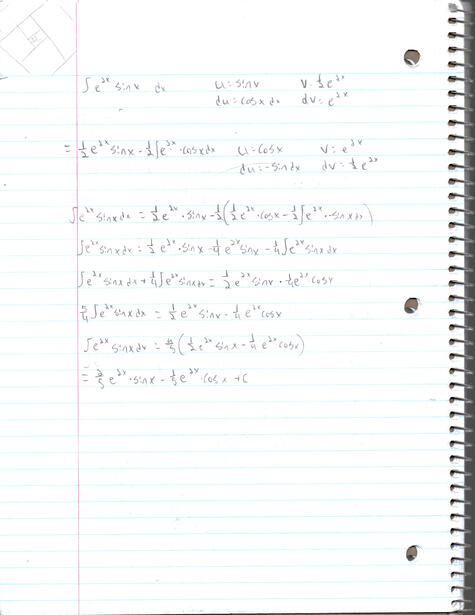 ∫e^{2x} sinx dx u=sinx v=½e^{2x}
du=cosx dx dv=e^{2x}
=½e^{2x} sinx - ½∫e^{2x}·cosxdx u=cosx v=e^{2x}
du=-sindx dv=½e^{2x}
∫e^{2x} sinxdx = ½e^{2x}·sinx - ½(½e^{2x}·cosx - ½∫e^{2x}·-sinxdx)
∫e^{2x} sinxdx = ½e^{2x}·sinx - ¼e^{2x} sinx - ¼∫e^{2x} sinxdx
∫e^{2x} sinxdx + ¼∫e^{2x} sinxdx = ½e^{2x} sinx · ¼e^{2x} cosx
5/4 ∫e^{2x} sinxdx = ½e^{2x} sinx - ¼e^{2x} cosx
∫e^{2x} sinxdx = 4/5(½e^{2x} sinx - ¼e^{2x} cosx)
= 2/5 e^{2x}·sinx - 1/5 e^{2x}·cosx + C